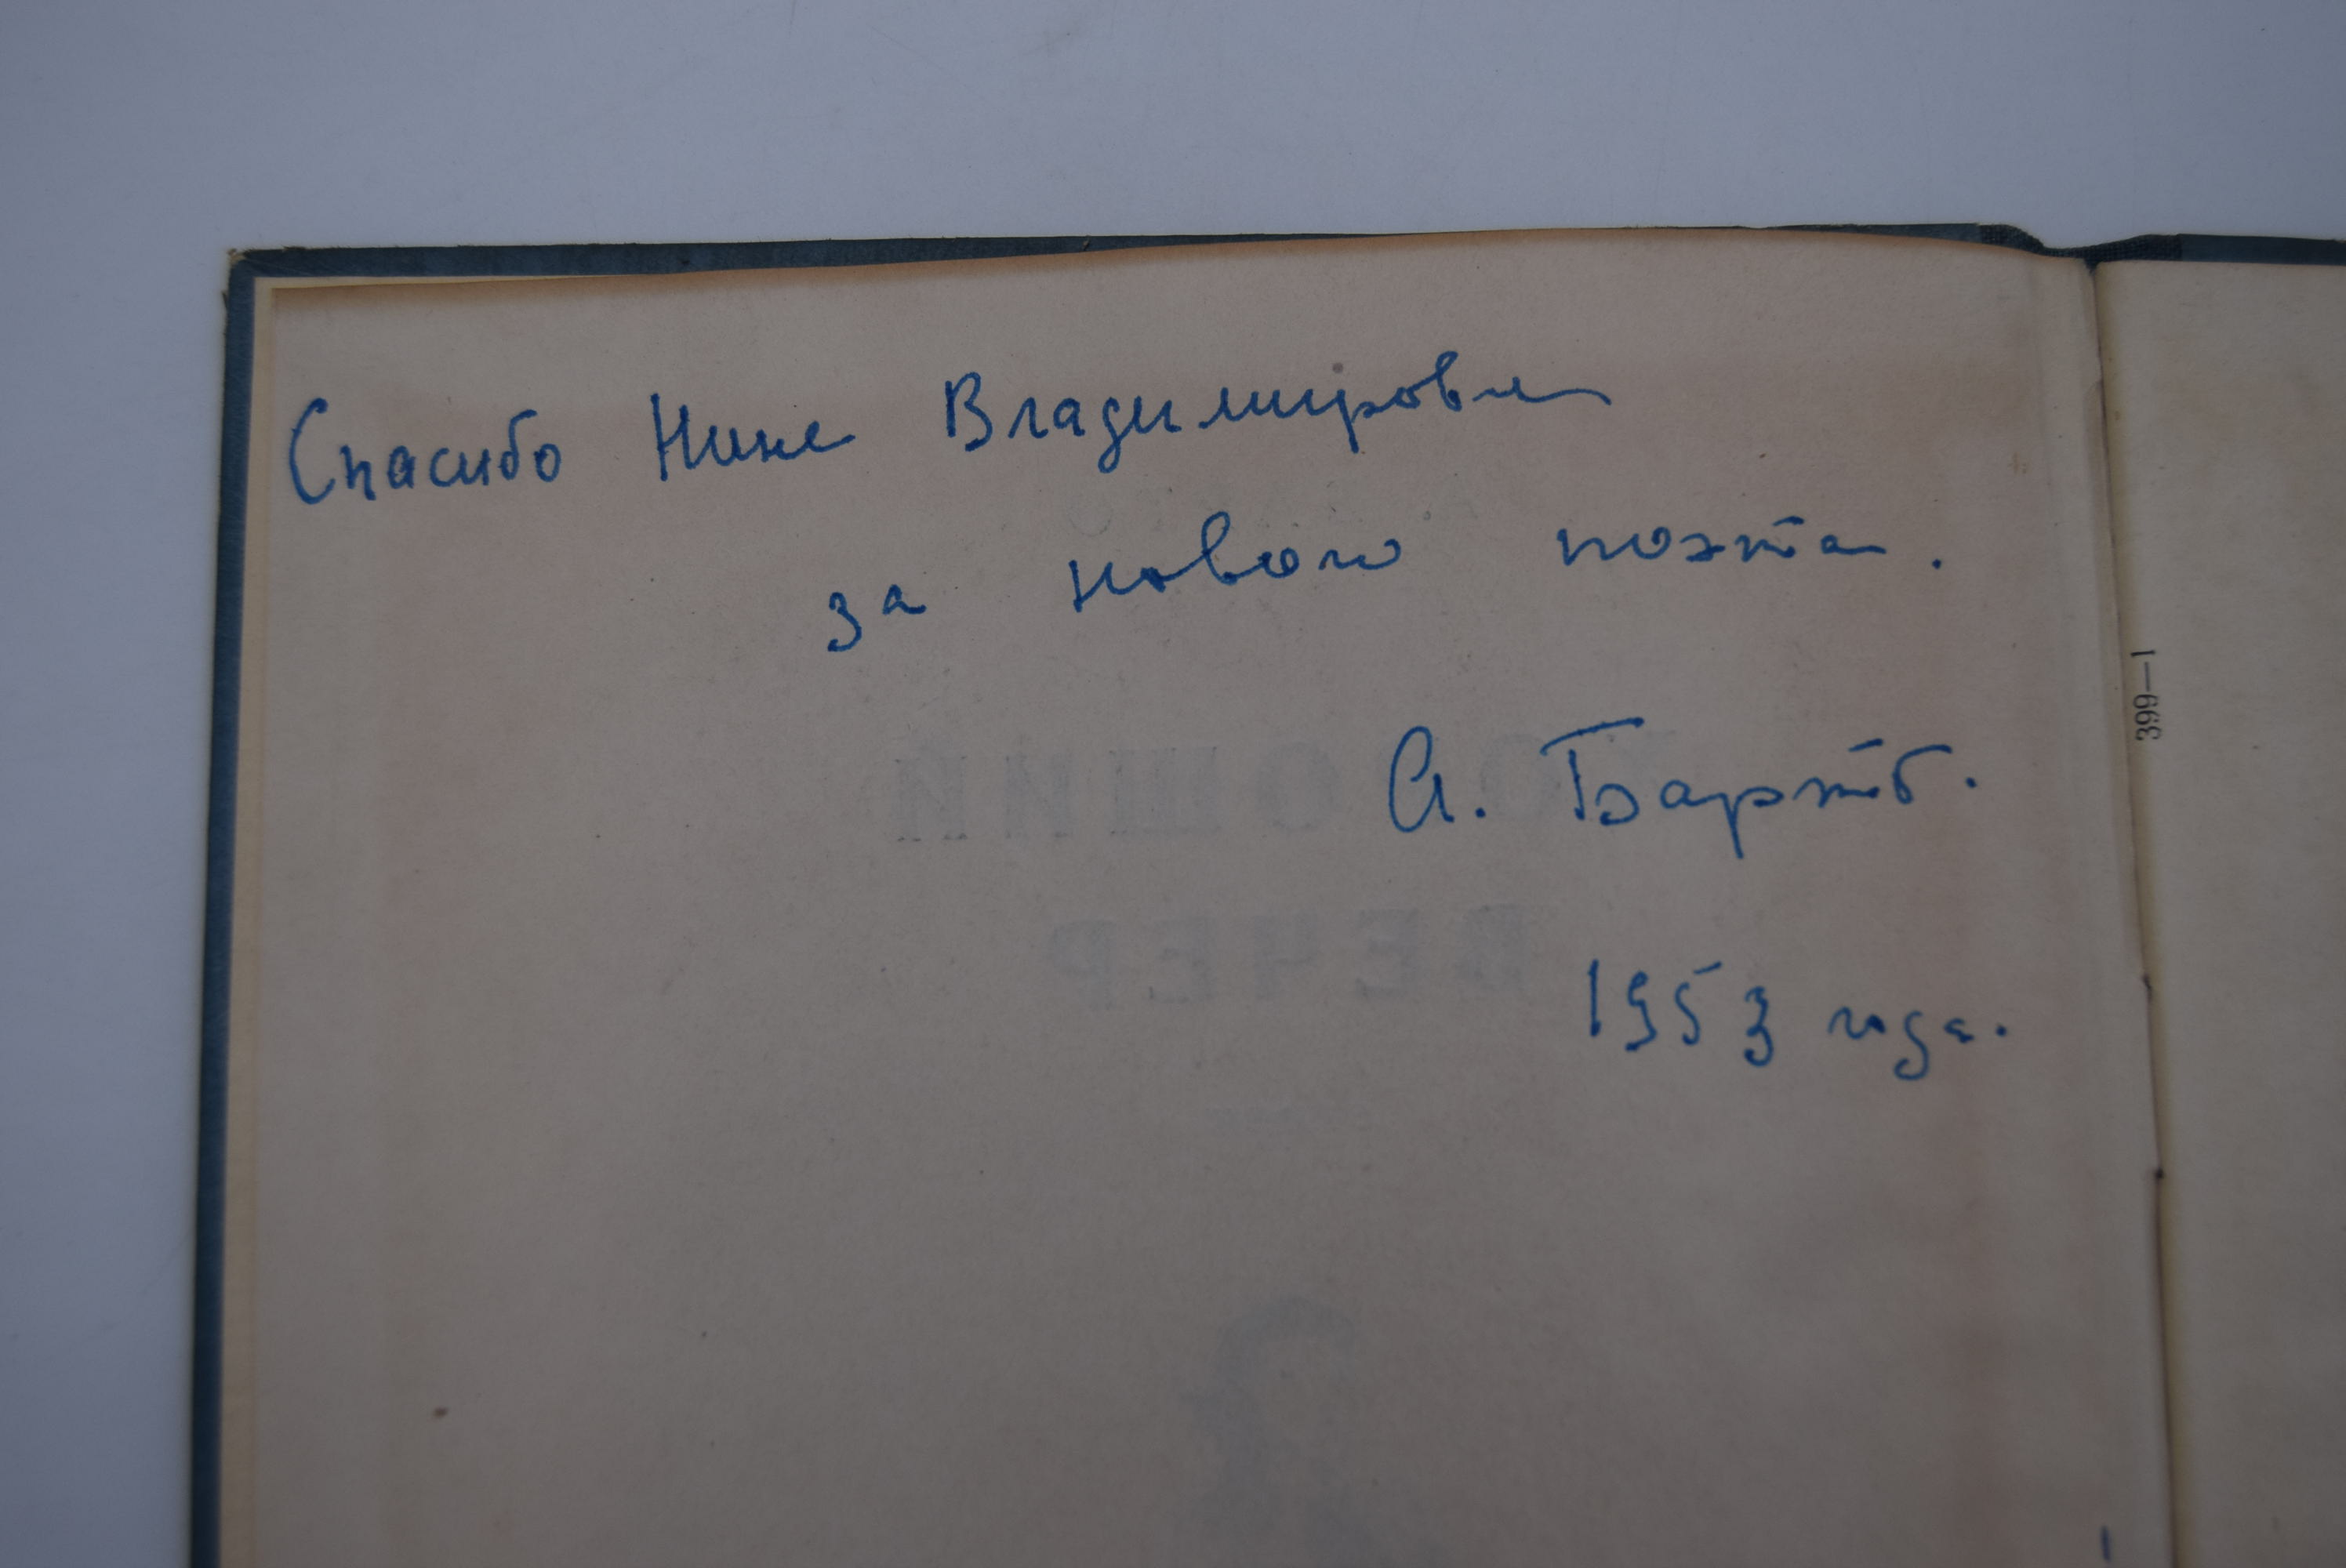 Спасибо Нине Владимировне
за нового поэта.
А. Барто.
1953 года.
399—1
ВЕЧЕР